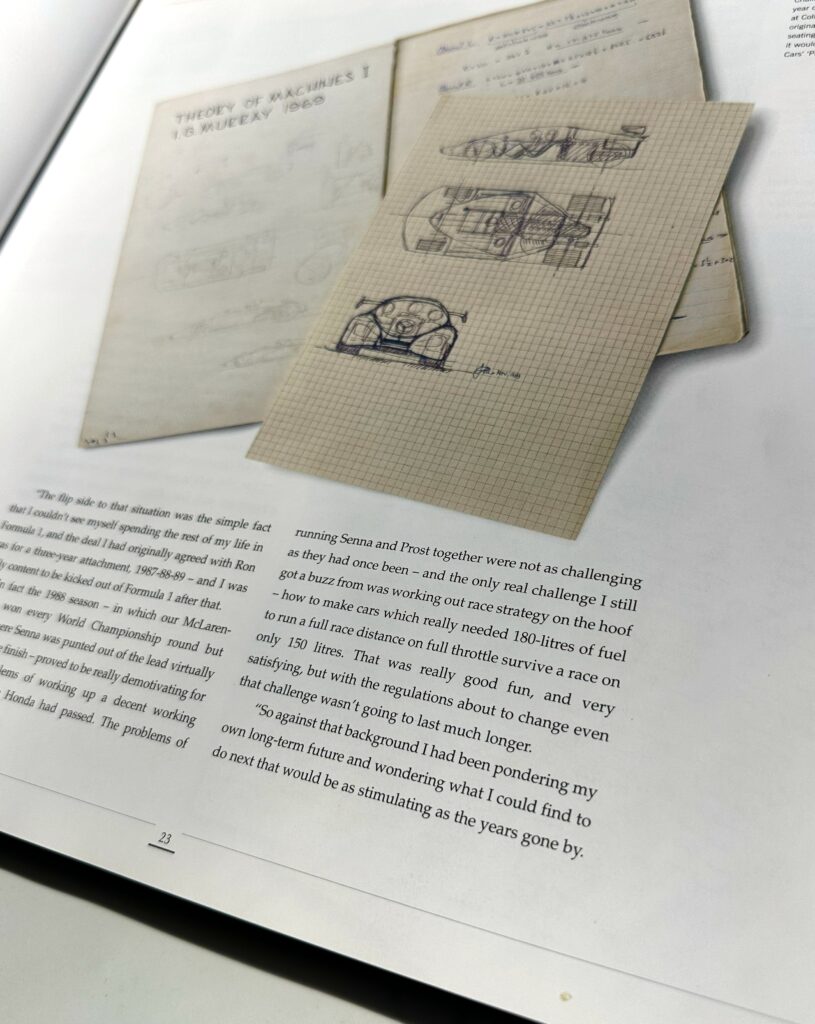 year
at Col
origina
seating
it would
Cars' 'P
THEORY OF MACHINES I
I.G. MURRAY 1969
"The flip side to that situation was the simple fact
that I couldn't see myself spending the rest of my life in
Formula 1, and the deal I had originally agreed with Ron
as for a three-year attachment, 1987-88-89 – and I was
y content to be kicked out of Formula 1 after that.
n fact the 1988 season – in which our McLaren-
won every World Championship round but
ere Senna was punted out of the lead virtually
finish – proved to be really demotivating for
lems of working up a decent working
Honda had passed. The problems of
running Senna and Prost together were not as challenging
as they had once been – and the only real challenge I still
got a buzz from was working out race strategy on the hoof
– how to make cars which really needed 180-litres of fuel
to run a full race distance on full throttle survive a race on
only 150 litres. That was really good fun, and very
satisfying, but with the regulations about to change even
that challenge wasn't going to last much longer.
"So against that background I had been pondering my
own long-term future and wondering what I could find to
do next that would be as stimulating as the years gone by.
23